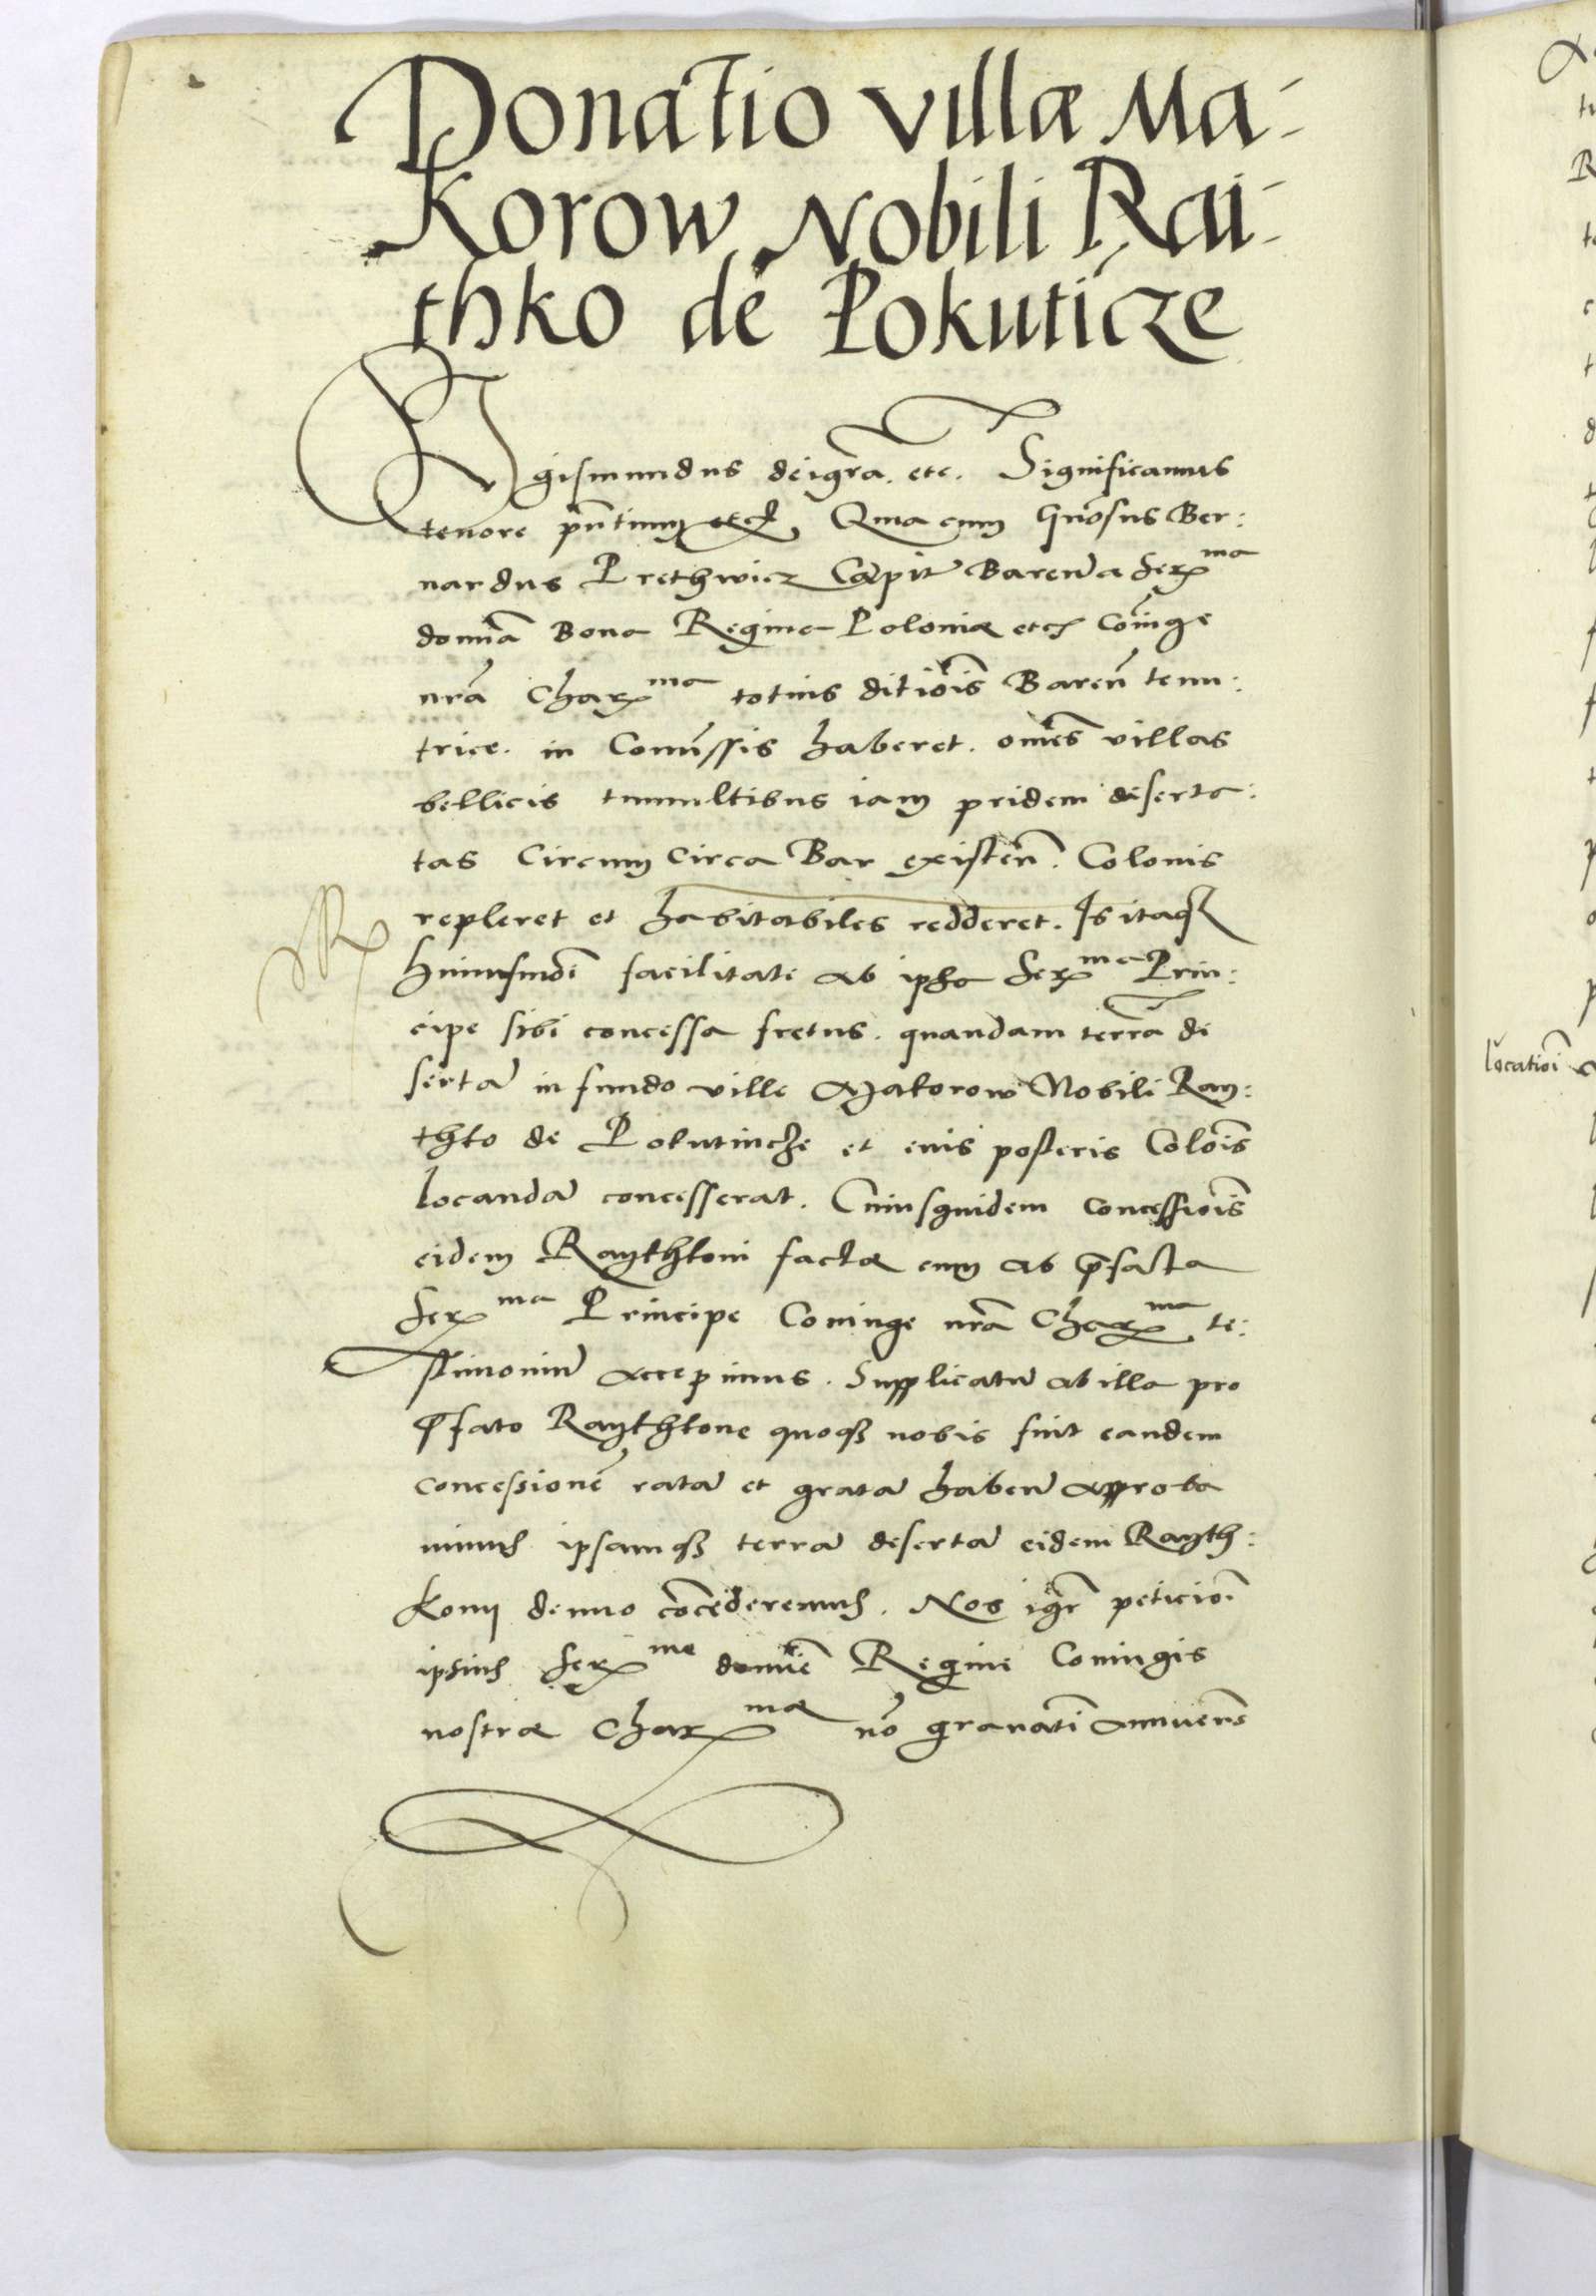 Donatio villæ Ma-
korow Nobili Rai-
thko de Pokuticze
Sigismundus dei gr̃a. etc. Significamus
tenore pñtium etc̃ Quia cum Gñosus Ber:
nardus Prethwicz Capit̃ Bareñ a Ser^ma
domĩa Bona Regina Poloniæ etc̃ Coniũge
nr̃a Char^ma totius ditiõis Bareñ tenu:
trice. in Com̃issis haberet. om̃es villas
bellicis tumultibus iam pridem deserta:
tas Circum circa Bar existeñ. Colonis
repleret et habitabiles redderet. Is itaq̃
huiusmodi facilitate ab ipsa Ser^ma Prin:
cipe sibi concessa fretus. quandam terrã de
sertã in fundo ville Makorow Nobili Ray:
thko de Pokutincze et eius posteris Colõis
locandã concesserat. Cuiusquidem concessiõis
eidem Raythkoni factæ cum ab p̃facta
Ser^ma Principe Coniuge nr̃a Char^ma te:
stimoniũ accepimus. Supplicatũ ab illa pro
p̃fato Raythkone quoq̃ nobis fuit eandem
concessionẽ ratã et gratã habeñ approba
rimus ipsamq̃ terrã desertã eidem Rayth:
kony denuo cõcederemus. Nos igr̃ peticiõi
ipsius Ser^me domĩe Regine Coniugis
nostræ Char^mæ nõ grauatĩ annueñs
locatiõi